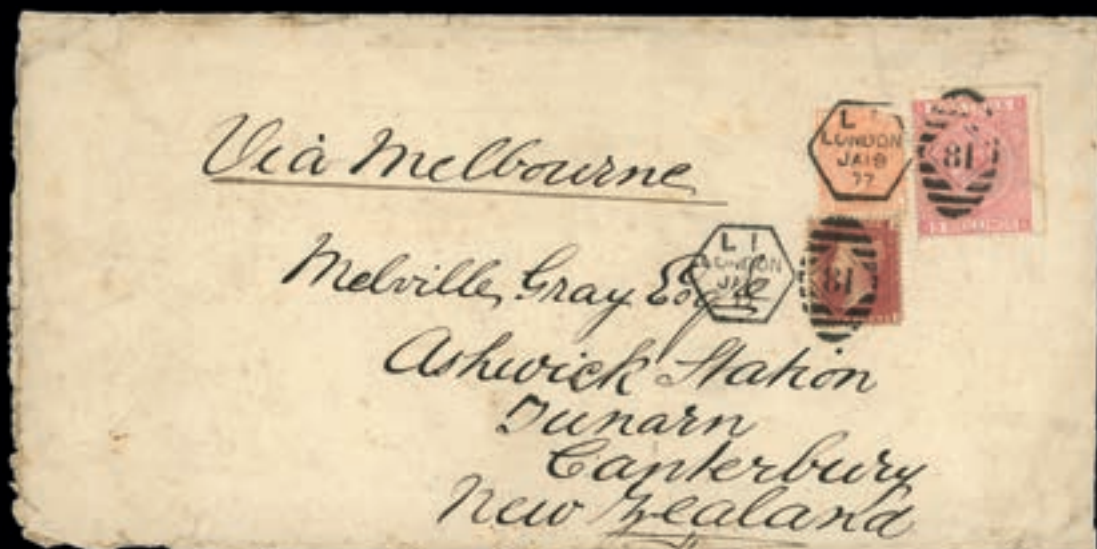 Via Melbourne
L 1
LONDON
JA 19
77
81
L 1
LONDON
JA
81
Melville Gray Esqre
Ashwick Station
Dunarn
Canterbury
New Zealand